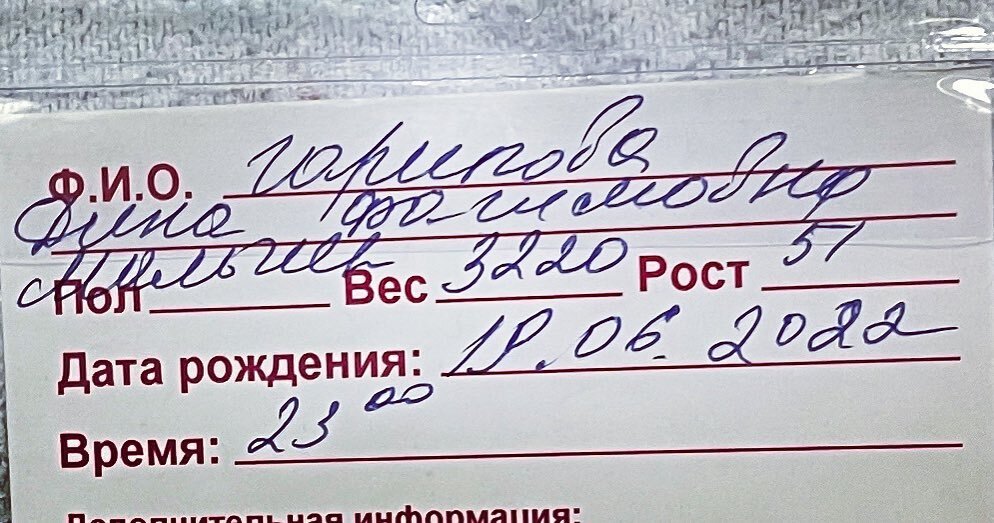 Ф.И.О. Гарипова
Дина Фагимовна
Пол мальчик Вес 3220 Рост 51
Дата рождения: 19.06.2022
Время: 23 00
Дополнительная информация: